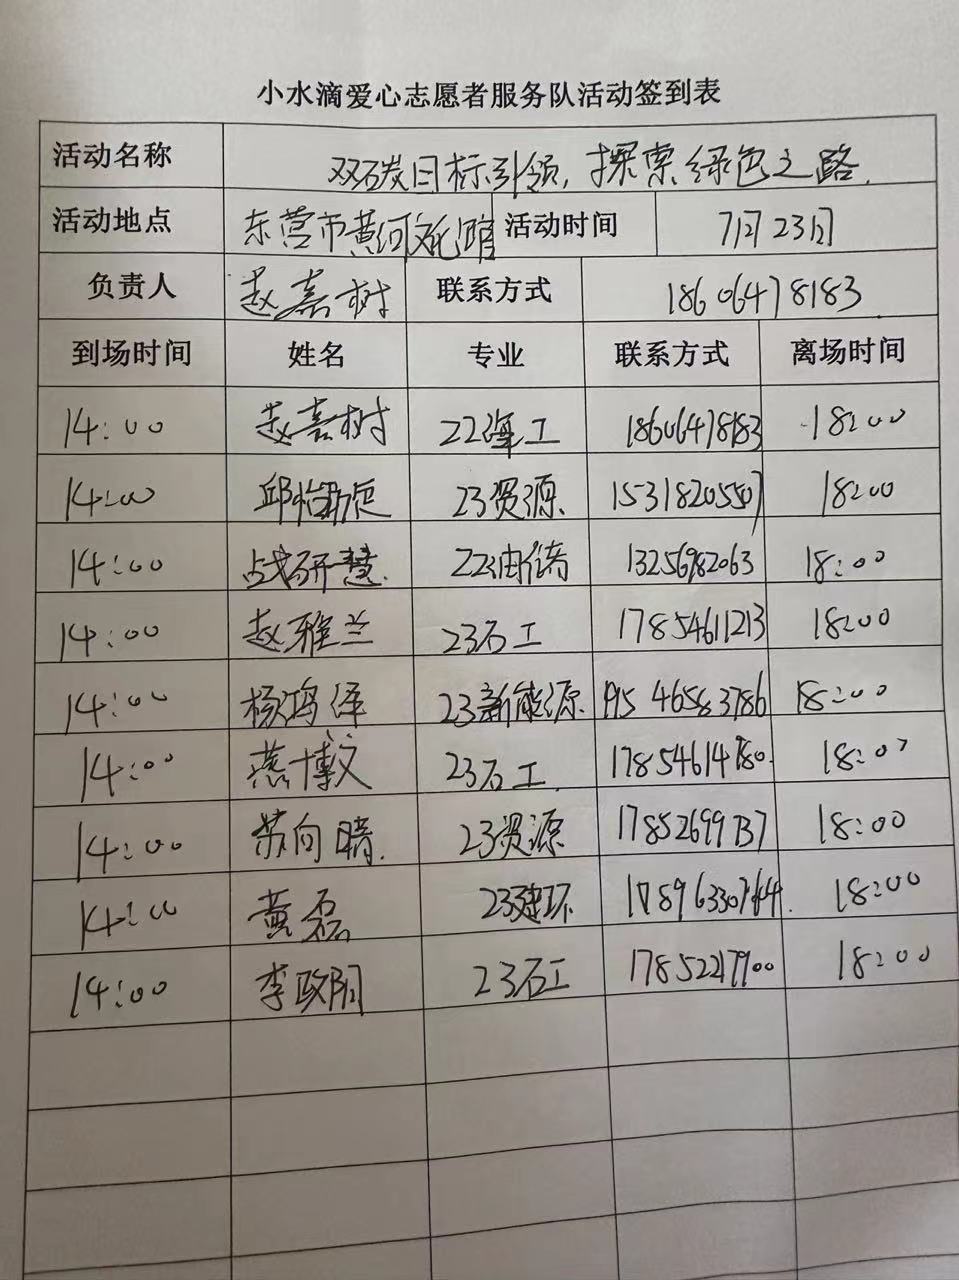 小水滴爱心志愿者服务队活动签到表
活动名称 双碳目标引领,探索绿色之路.
活动地点 东营市黄河文化馆 活动时间 7月23日
负责人 赵嘉树 联系方式 18606478183
到场时间 姓名 专业 联系方式 离场时间
14:00 赵嘉树 22海工 18606478183 18:00
14:00 邱怡 23资源 15318205507 18:00
14:00 战研慧 22油储 13256982063 18:00
14:00 赵雅兰 23石工 17854611213 18:00
14:00 杨鸿泽 23新能源 19546583786 18:00
14:00 燕博文 23石工 17854614780 18:00
14:00 苏向晴 23资源 18:00
14:00 黄磊 23建环 18:00
14:00 李政阳 23石工 17852217900 18:00